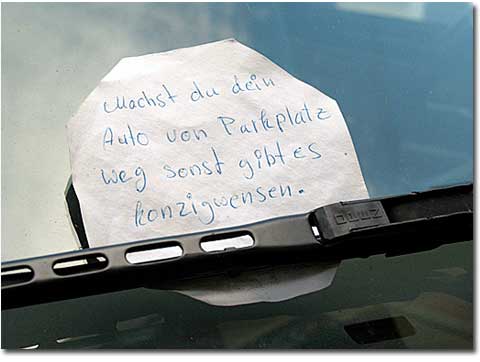 Machst du dein
Auto von Parkplatz
weg sonst gibt es
konzigwensen.